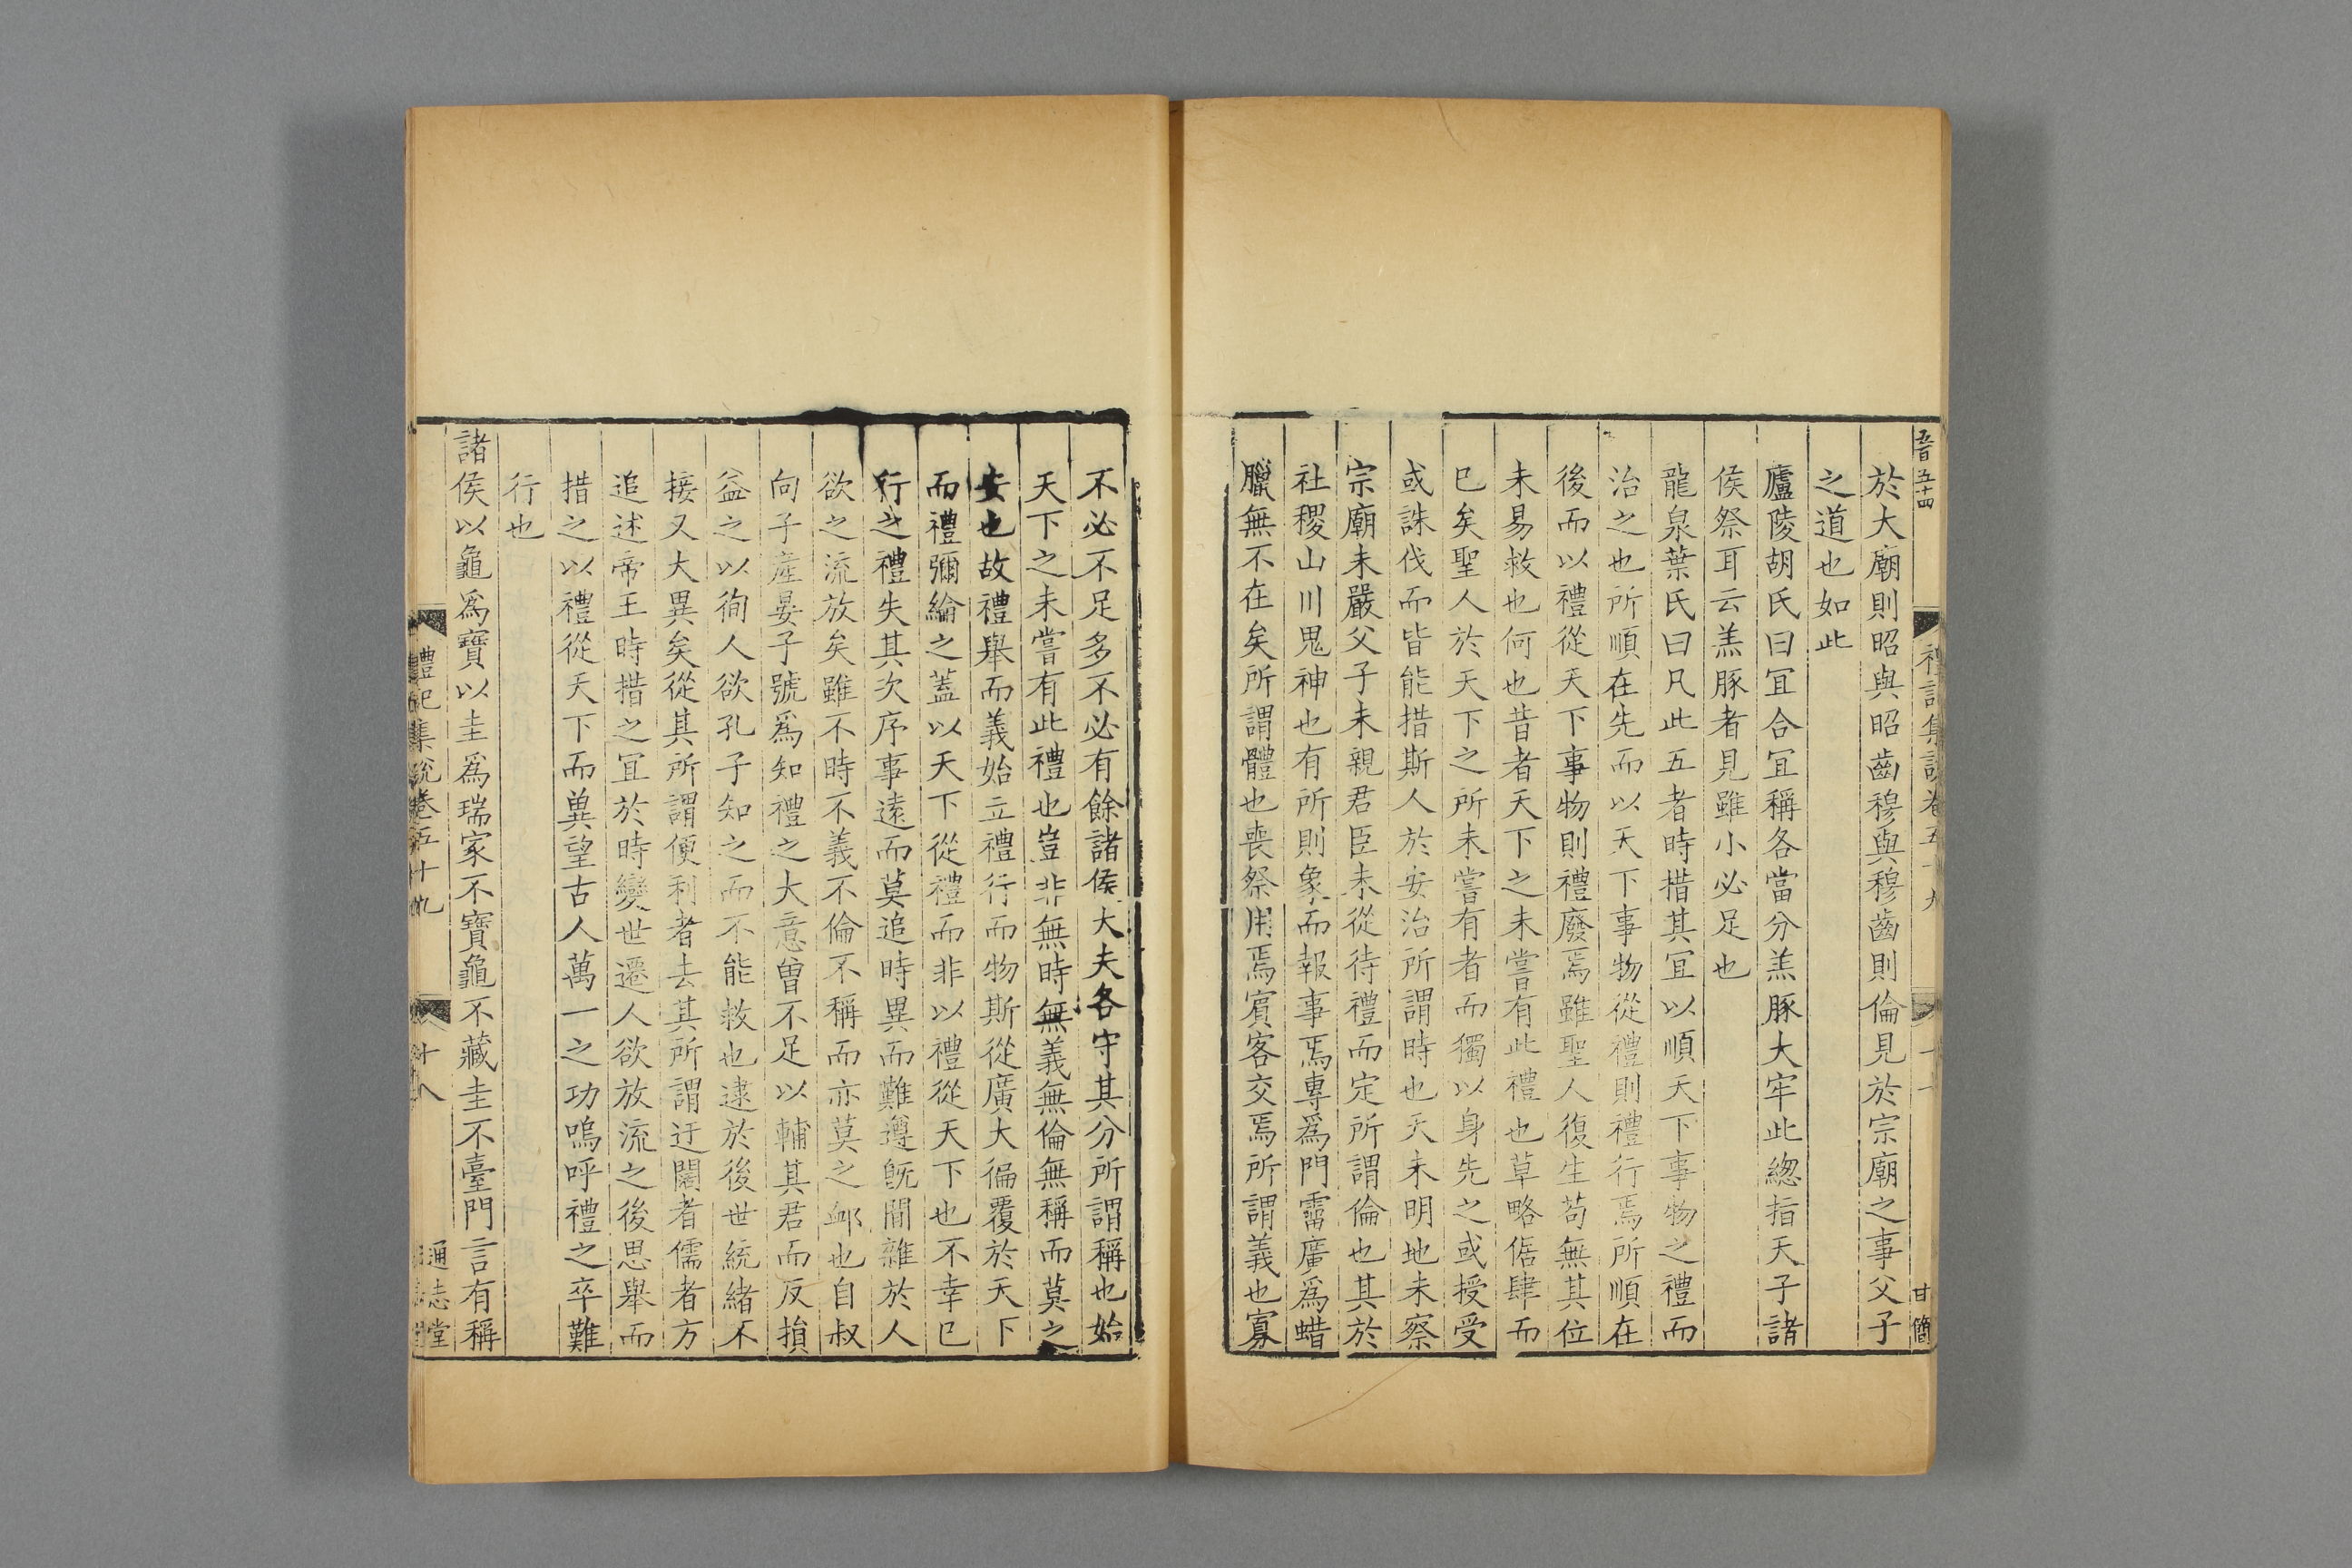 於大廟則昭與昭齒穆與穆齒則倫見於宗廟之事父子
之道也如此
廬陵胡氏曰冝合冝稱各當分羔豚大牢此緫指天子諸
侯祭耳云羔豚者見雖小必足也
龍泉葉氏曰凡此五者時措其冝以順天下事物之禮而
治之也所順在先而以天下事物從禮則禮行焉所順在
後而以禮從天下事物則禮廢焉雖聖人復生茍無其位
未易救也何也昔者天下之未嘗有此禮也草略倨肆而
已矣聖人於天下之所未嘗有者而獨以身先之或授受
或誅伐而皆能措斯人於安治所謂時也天未明地未察
宗廟未嚴父子未親君臣未從待禮而定所謂倫也其於
社稷山川鬼神也有所則象而報事焉專爲門霤廣爲蜡
臘無不在矣所謂體也喪祭用焉賔客交焉所謂義也寡
不必不足多不必有餘諸侯大夫各守其分所謂稱也始
天下之未嘗有此禮也豈非無時無義無倫無稱而莫之
安也故禮舉而義始立禮行而物斯從廣大徧覆於天下
而禮彌綸之蓋以天下從禮而非以禮從天下也不幸已
行之禮失其次序事遠而莫追時異而難遵旣間雜於人
欲之流放矣雖不時不義不倫不稱而亦莫之邺也自叔
向子產晏子號爲知禮之大意曾不足以輔其君而反損
益之以徇人欲孔子知之而不能救也逮於後世統緒不
接又大異矣從其所謂便利者去其所謂迂闊者儒者方
追述帝王時措之冝於時變世遷人欲放流之後思舉而
措之以禮從天下而兾望古人萬一之功嗚呼禮之卒難
行也
諸侯以龜爲寶以圭爲瑞家不寶龜不藏圭不臺門言有稱
禮記集說卷五十九
十八
通志堂